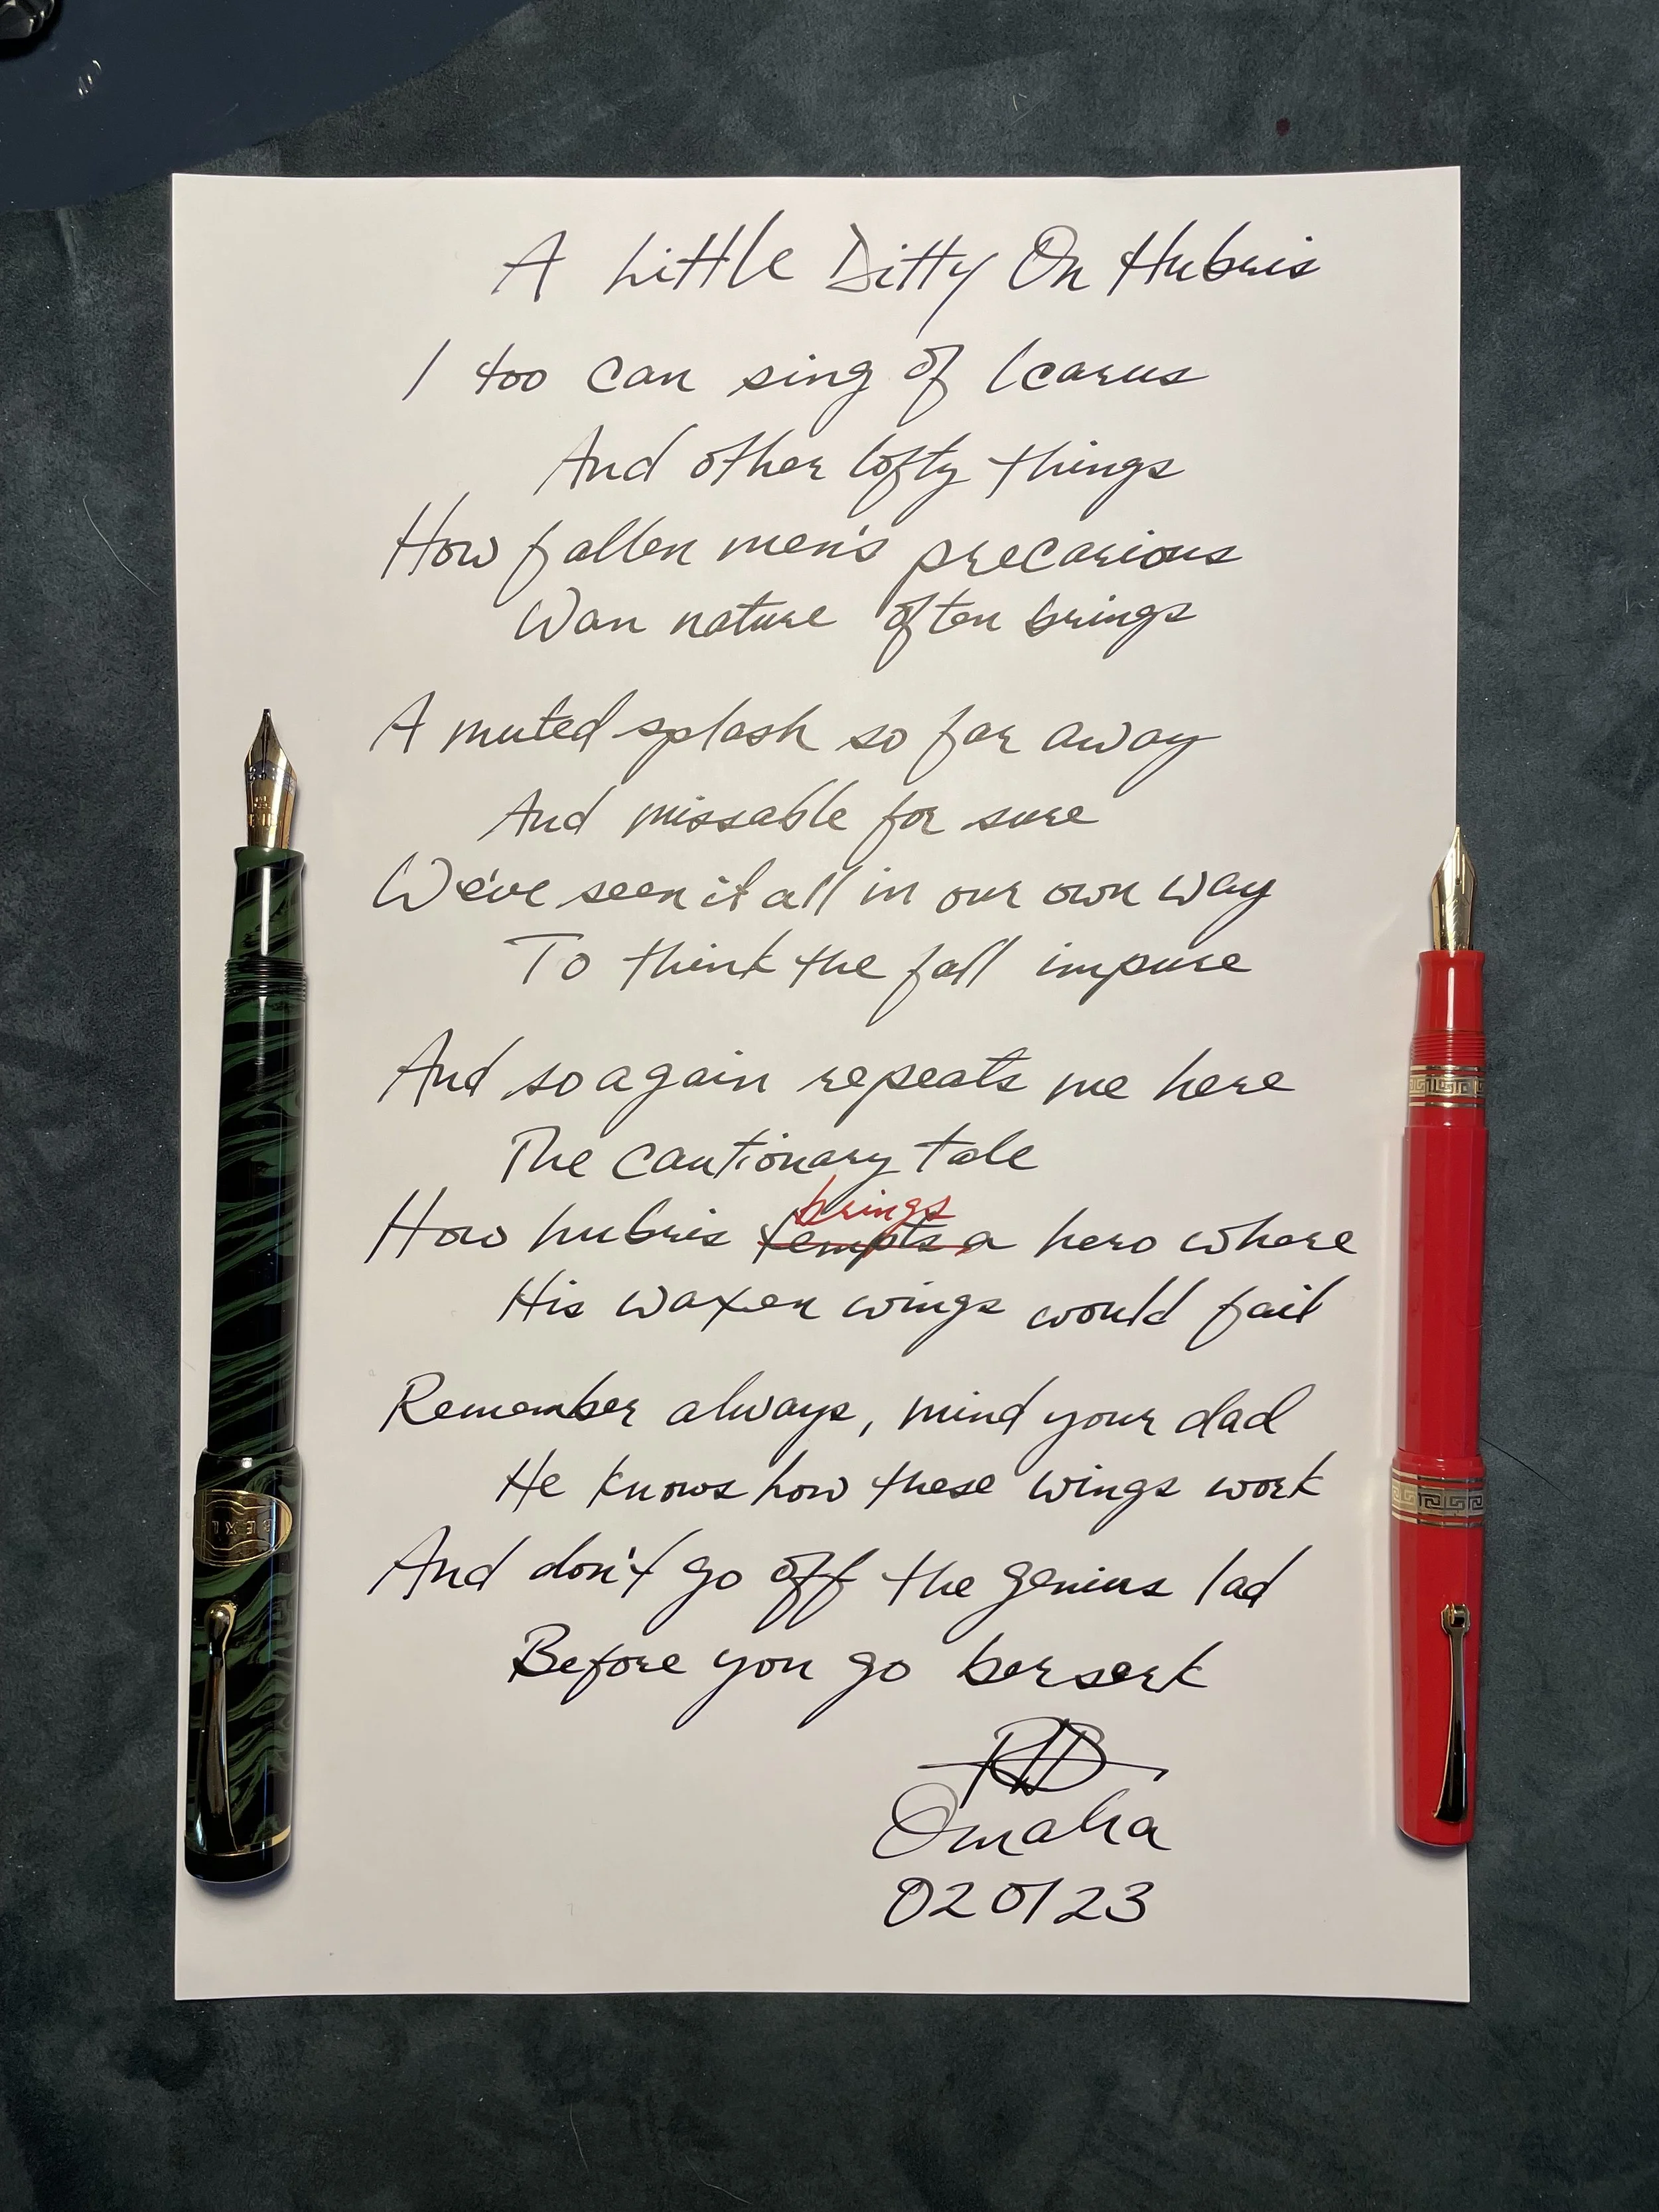 A Little Ditty On Hubris
I too can sing of Icarus
And other lofty things
How fallen men's precarious
Wan nature often brings
A muted splash so far away
And missable for sure
We've seen it all in our own way
To think the fall impure
And so again repeats me here
The cautionary tale
brings
How hubris tempts a hero where
His waxen wings would fail
Remember always, mind your dad
He knows how these wings work
And don't go off the genius lad
Before you go berserk
RWB
Omaha
020123
BEXLEY